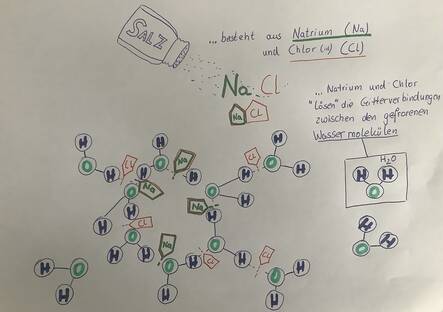 SALZ
... besteht aus Natrium (Na)
und Chlor(id) (Cl)
Na Cl
Na Cl
... Natrium und Chlor
"lösen" die Gitterverbindungen
zwischen den gefrorenen
Wassermolekülen
H₂O
H H
O
H H Cl H Na H Cl H
O O O
H Na O H
H H Na H
H Cl H H
O Na O O
H
H O H O H Cl O Cl H O H
H H H